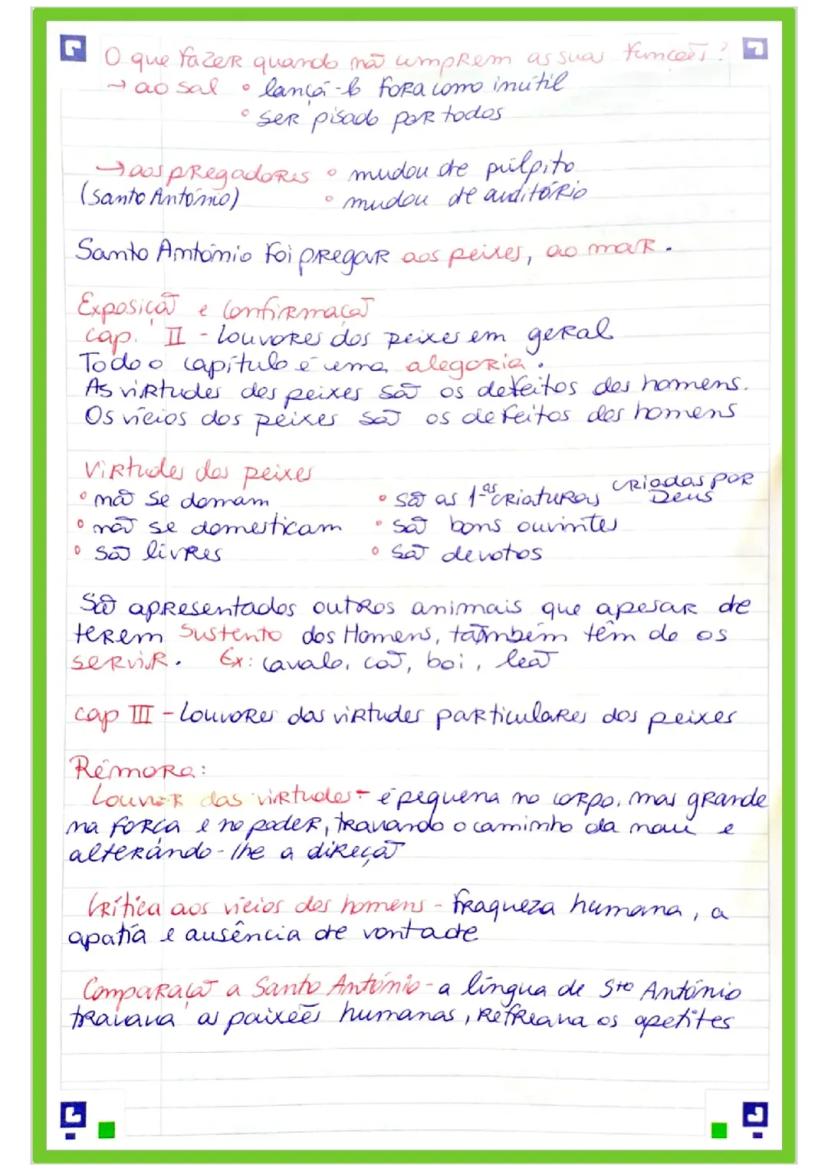 O que fazer quando não cumprem as suas funções?
→ ao sal ° lançá-lo fora como inútil
° ser pisado por todos
→ aos pregadores ° mudou de púlpito
(Santo António) ° mudou de auditório
Santo António foi pregar aos peixes, ao mar.
Exposição e Confirmação
cap. II - Louvores dos peixes em geral
Todo o capítulo é uma alegoria.
As virtudes dos peixes são os defeitos dos homens.
Os vícios dos peixes são os defeitos dos homens
Virtudes dos peixes
° não se domam ° são as 1ªs criaturas criadas por Deus
° não se domesticam ° são bons ouvintes
° são livres ° são devotos
São apresentados outros animais que apesar de
terem sustento dos Homens, também têm de os
servir. Ex: cavalo, cão, boi, leão
cap III - Louvores das virtudes particulares dos peixes
Rémora:
Louvor das virtudes - é pequena no corpo, mas grande
na força e no poder, travando o caminho da nau e
alterando-lhe a direção
Crítica aos vícios dos homens - fraqueza humana, a
apatia e ausência de vontade
Comparação a Santo António - a língua de Sto António
travava as paixões humanas, refreava os apetites